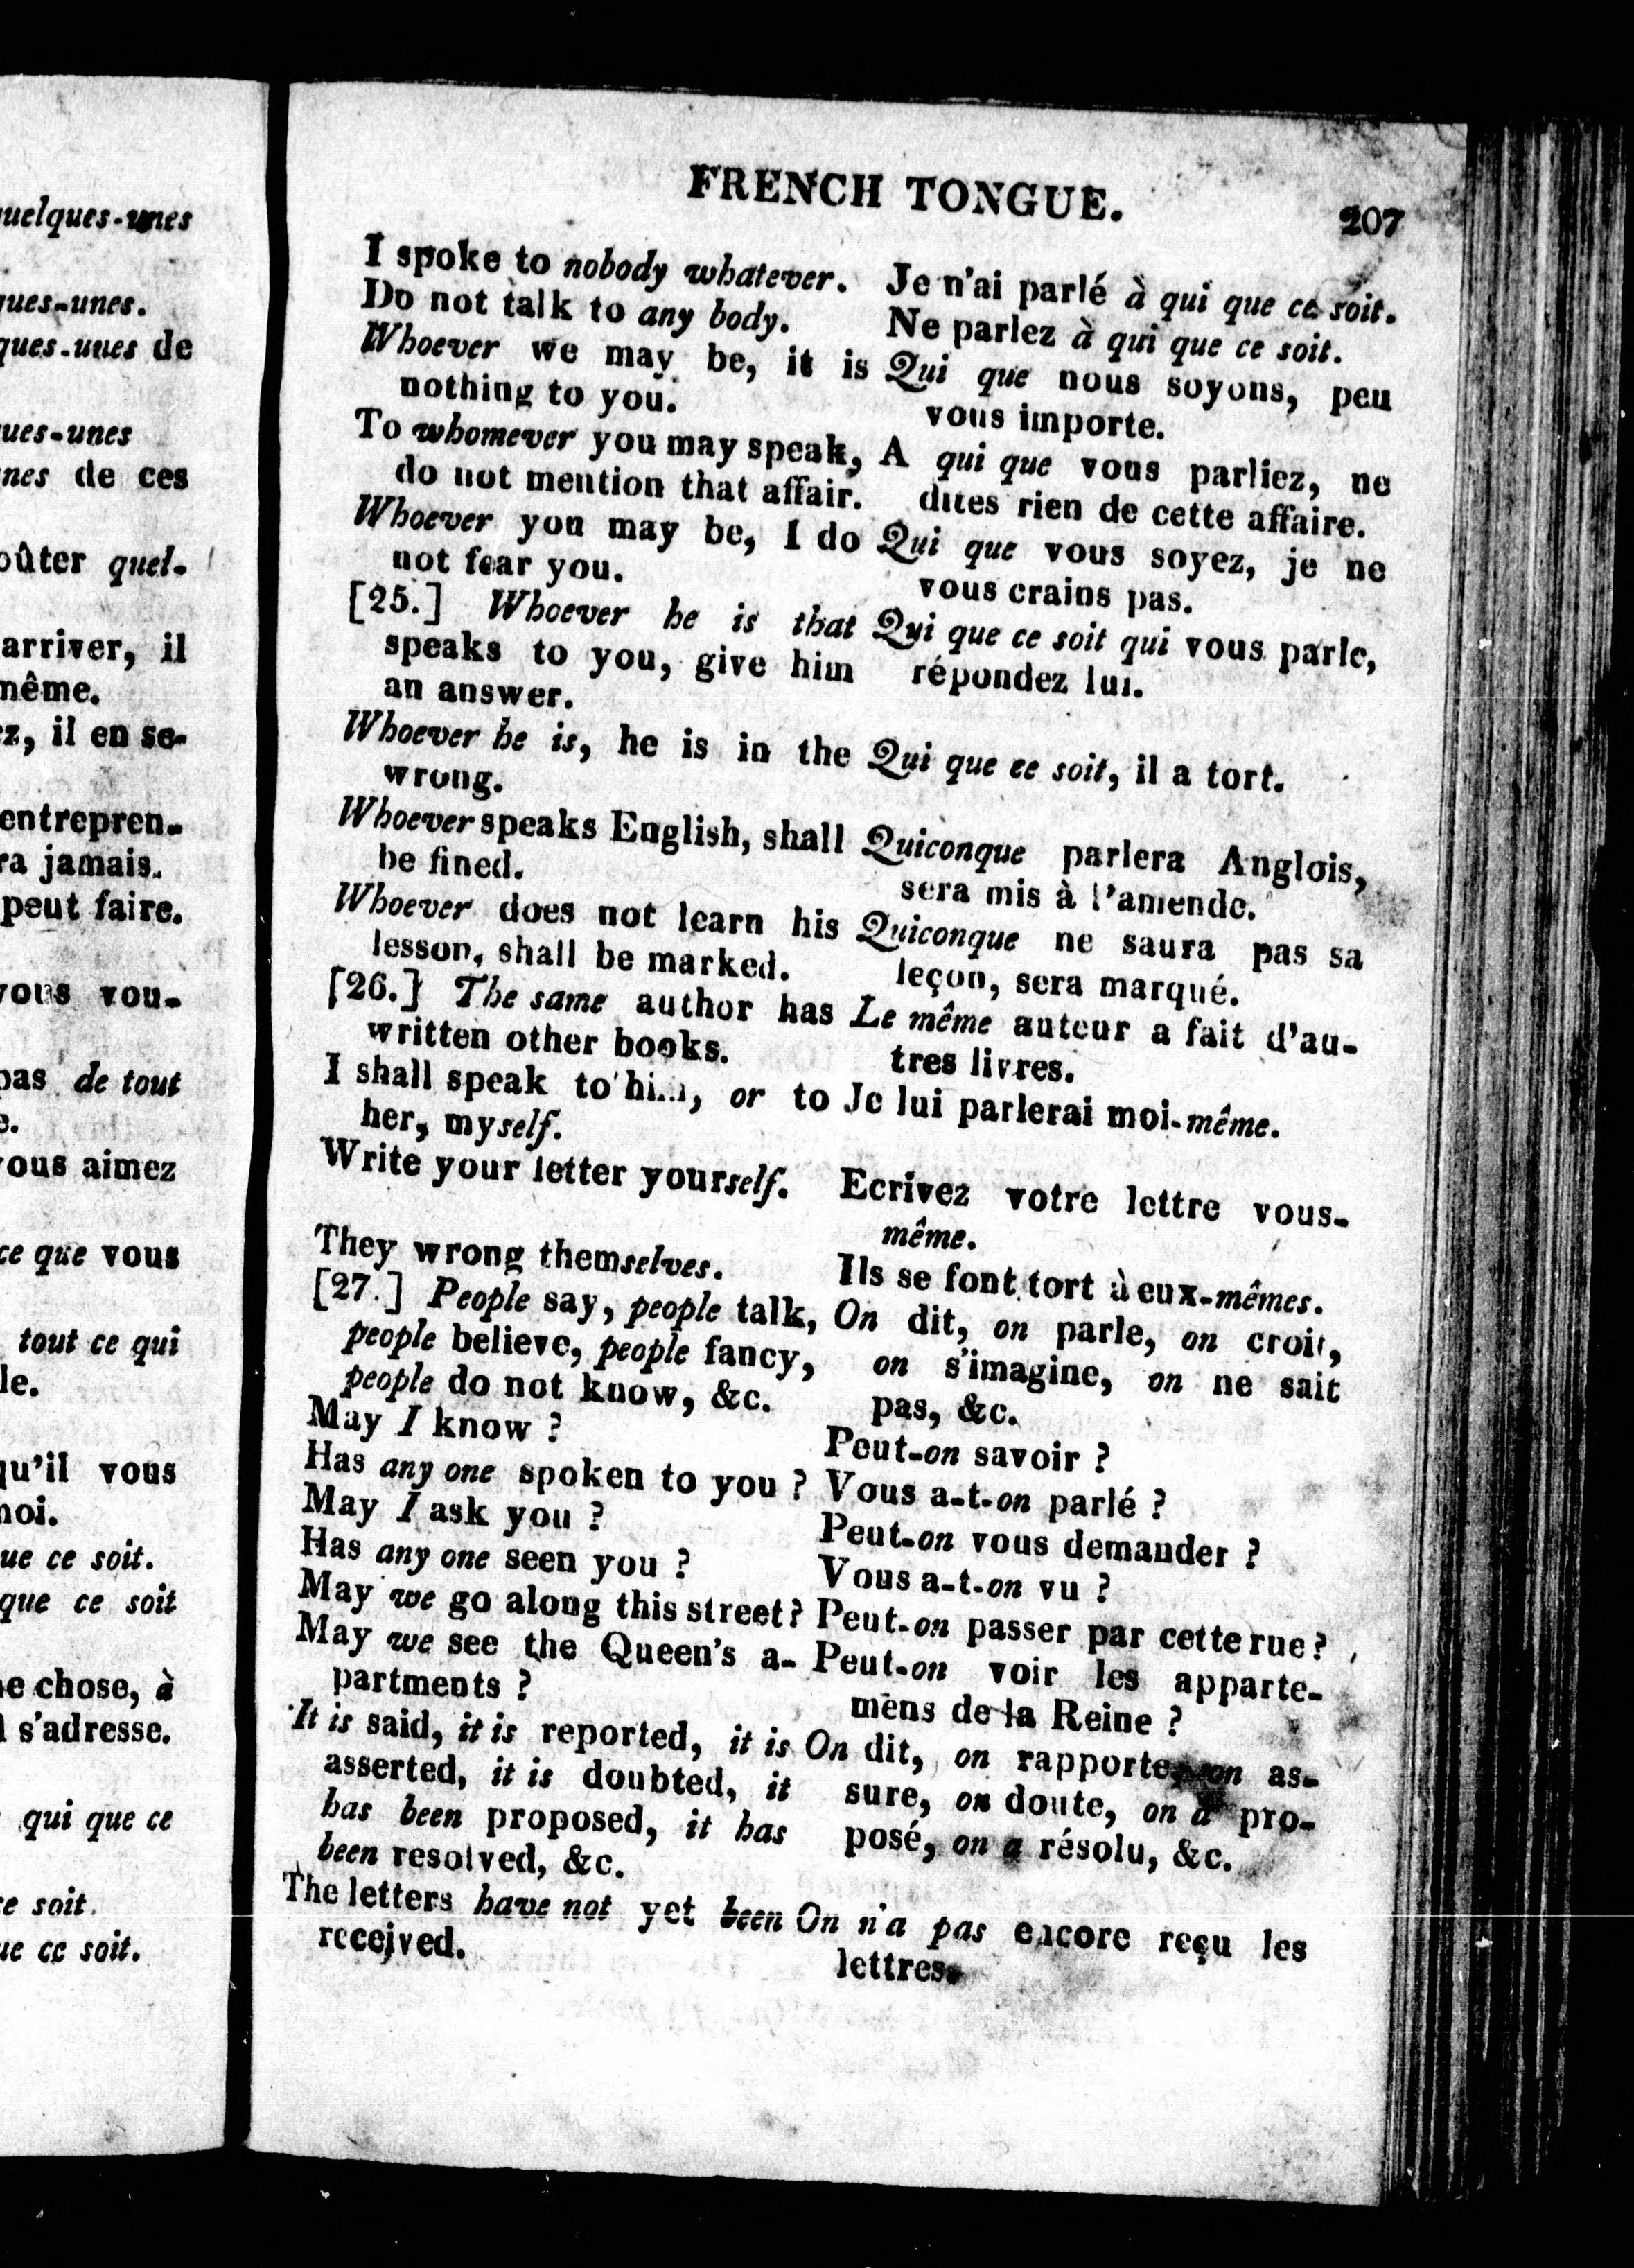 uelques-unes
ques-unes.
ques-unes de
ues-unes
nes de ces
oûter quel-
arriver, il
même.
z, il en se-
entrepren-
ra jamais.
peut faire.
vous vou-
pas de tout
vous aimez
ce que vous
tout ce qui
le.
qu'il vous
moi.
ue ce soit.
que ce soit
e chose, à
s'adresse.
qui que ce
e soit.
ue ce soit.
FRENCH TONGUE.
207
I spoke to nobody whatever. Je n'ai parlé à qui que ce soit.
Do not talk to any body. Ne parlez à qui que ce soit.
Whoever we may be, it is Qui que nous soyons, peu
nothing to you. vous importe.
To whomever you may speak, A qui que vous parliez, ne
do not mention that affair. dites rien de cette affaire.
Whoever you may be, I do Qui que vous soyez, je ne
not fear you. vous crains pas.
[25.] Whoever he is that Qui que ce soit qui vous parle,
speaks to you, give him répondez lui.
an answer.
Whoever he is, he is in the Qui que ce soit, il a tort.
wrong.
Whoever speaks English, shall Quiconque parlera Anglois,
be fined. sera mis à l'amende.
Whoever does not learn his Quiconque ne saura pas sa
lesson, shall be marked. leçon, sera marqué.
[26.] The same author has Le même auteur a fait d'au-
written other books. tres livres.
I shall speak to him, or to Je lui parlerai moi-même.
her, myself.
Write your letter yourself. Ecrivez votre lettre vous-
même.
They wrong themselves. Ils se font tort à eux-mêmes.
[27.] People say, people talk, On dit, on parle, on croit,
people believe, people fancy, on s'imagine, on ne sait
people do not know, &c. pas, &c.
May I know ? Peut-on savoir ?
Has any one spoken to you ? Vous a-t-on parlé ?
May I ask you ? Peut-on vous demander ?
Has any one seen you ? Vous a-t-on vu ?
May we go along this street? Peut-on passer par cette rue?
May we see the Queen's a- Peut-on voir les apparte-
partments ? mens de la Reine ?
It is said, it is reported, it is On dit, on rapporte, on as-
asserted, it is doubted, it sure, on doute, on a pro-
has been proposed, it has posé, on a résolu, &c.
been resolved, &c.
The letters have not yet been On n'a pas encore reçu les
received. lettres.